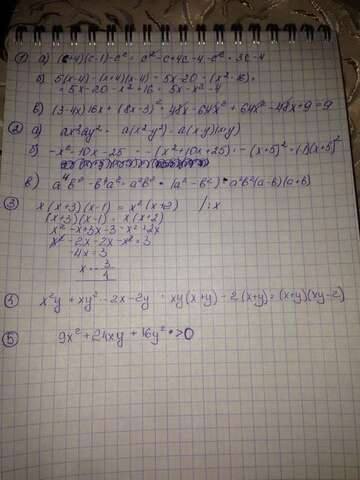 ① а) (c+4)(c-1)-c² = c²-c+4c-4-c² = 3c-4
б) 5(x-4)-(x+4)(x-4) = 5x-20-(x²-16) =
= 5x-20-x²+16 = 5x-x²-4
б) (3-4x)16x + (8x-3)² = 48x-64x² + 64x²-48x+9 = 9
② а) ax²-ay² = a(x²-y²) = a(x-y)(x+y)
б) -x²-10x-25 = -(x²+10x+25) = -(x+5)² = (-1)(x+5)²
в) a⁴b² - b⁴a² = a²b² (a²-b²) = a²b²(a-b)(a+b)
③ x(x+3)(x-1) = x²(x+2) /:x
(x+3)(x-1) = x(x+2)
x²-x+3x-3 = x²+2x
x²-2x-2x-x²=3
-4x=3
x=-3/4
④ x²y + xy² - 2x-2y = xy(x+y)-2(x+y)=(x+y)(xy-2)
⑤ 9x²+24xy+16y² >0